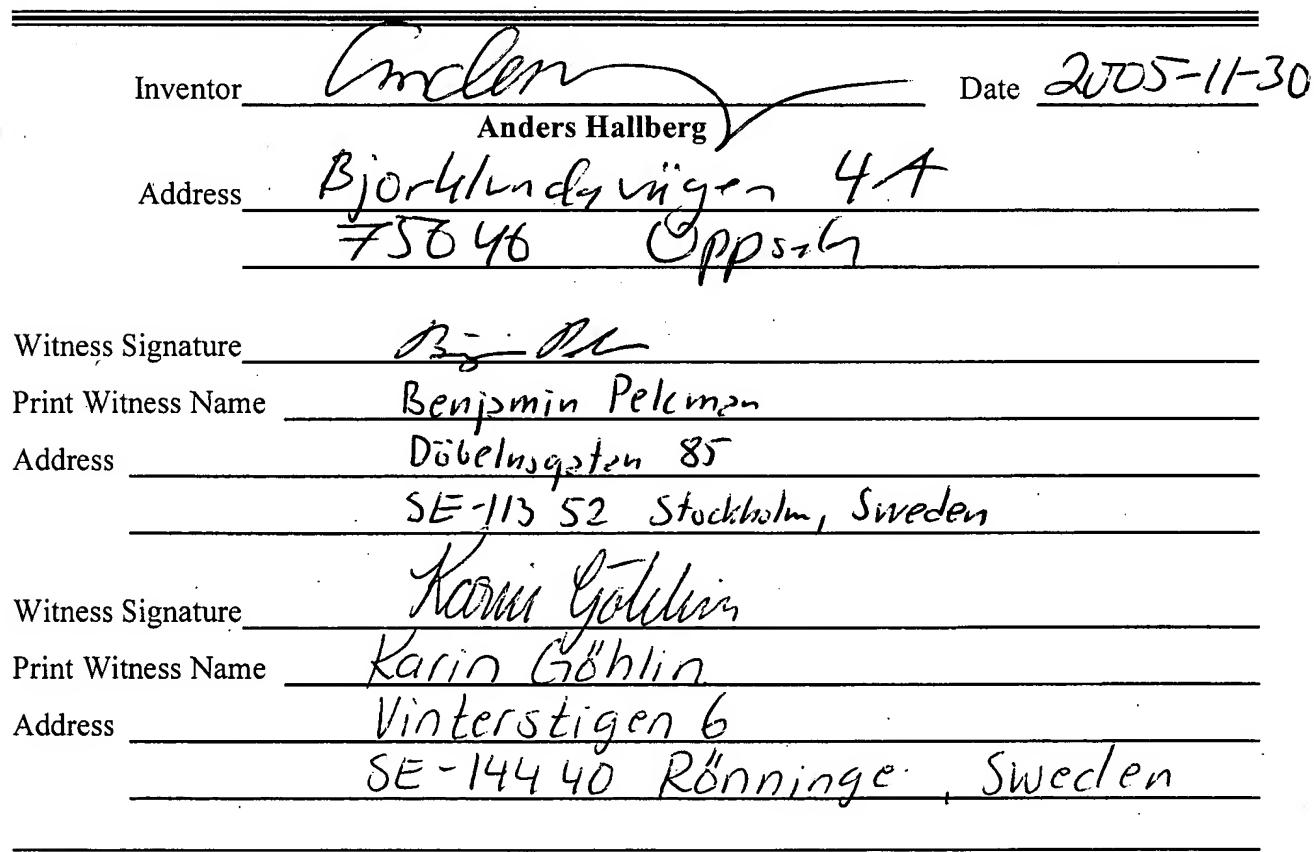 Inventor Anders Date 2005-11-30
Anders Hallberg
Address Björklundsvägen 4A
756 46 Uppsala
Witness Signature
Print Witness Name Benjamin Pelcman
Address Döbelnsgatan 85
SE-113 52 Stockholm, Sweden
Witness Signature Karin Göhlin
Print Witness Name Karin Göhlin
Address Vinterstigen 6
SE-144 40 Rönninge, Sweden